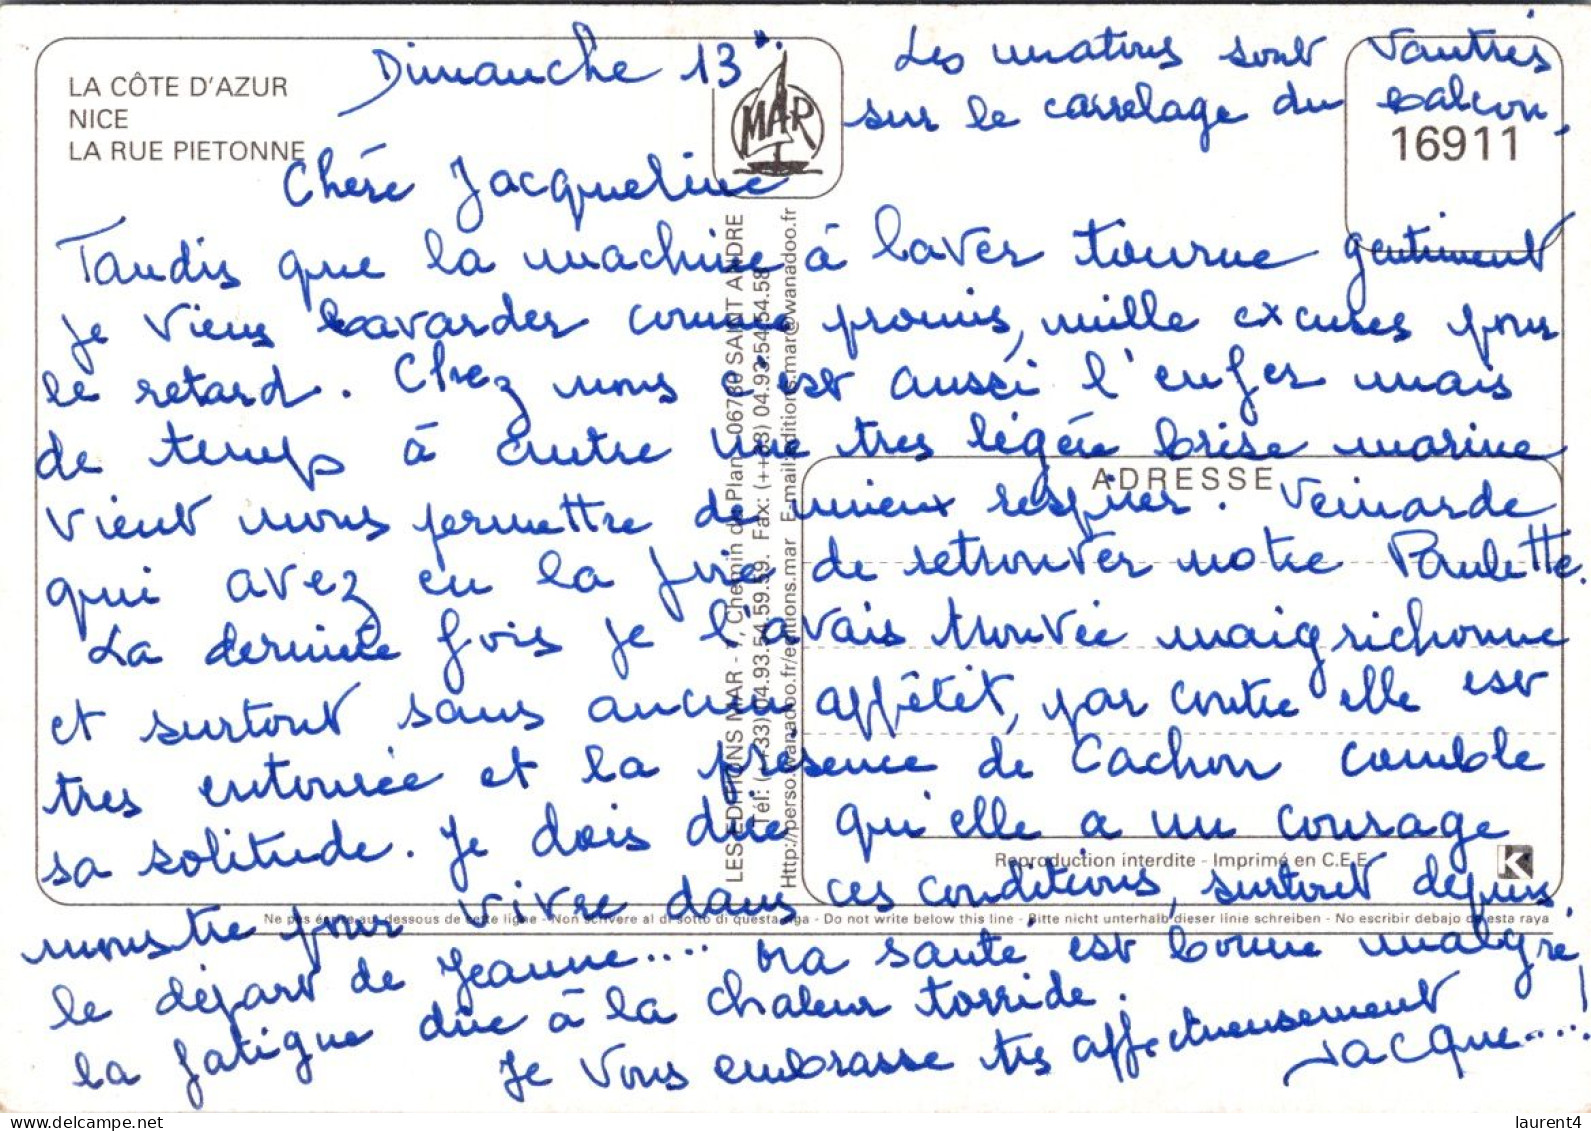 LA CÔTE D'AZUR
NICE
LA RUE PIETONNE
MAR
16911
Dimanche 13
Les matous sont vautrés
sur le carrelage du balcon.
Chère Jacqueline
Tandis que la machine à laver tourne gentiment
je viens bavarder comme promis, mille excuses pour
le retard. Chez nous c'est aussi l'enfer mais
de temps à autre une tres légère brise marine
vient nous permettre de mieux respirer. Veinarde
qui avez eu la joie de retrouver notre Paulette.
La dernière fois je l'avais trouvée maigrichonne
et surtout sans aucun appêtit, par contre elle est
tres entourée et la présence de Cachou comble
sa solitude. Je dois dire qu'elle a un courage
monstre pour vivre dans ces conditions, surtout depuis
le départ de Jeanne.... Ma santé est bonne malgré
la fatigue dûe à la chaleur torride.
Je vous embrasse tres affectueusement
Jacque....!
LES EDITIONS MAR - 7, Chemin de Plan - 06730 SAINT ANDRE
Tél: (++33) 04.93.54.59.59. Fax: (++33) 04.93.54.54.58
Http://perso.wanadoo.fr/editions.mar E-mail:editions.mar@wanadoo.fr
ADRESSE
Reproduction interdite - Imprimé en C.E.E.
K
Ne pas écrire au dessous de cette ligne - Non scrivere al di sotto di questa riga - Do not write below this line - Bitte nicht unterhalb dieser linie schreiben - No escribir debajo de esta raya
laurent4